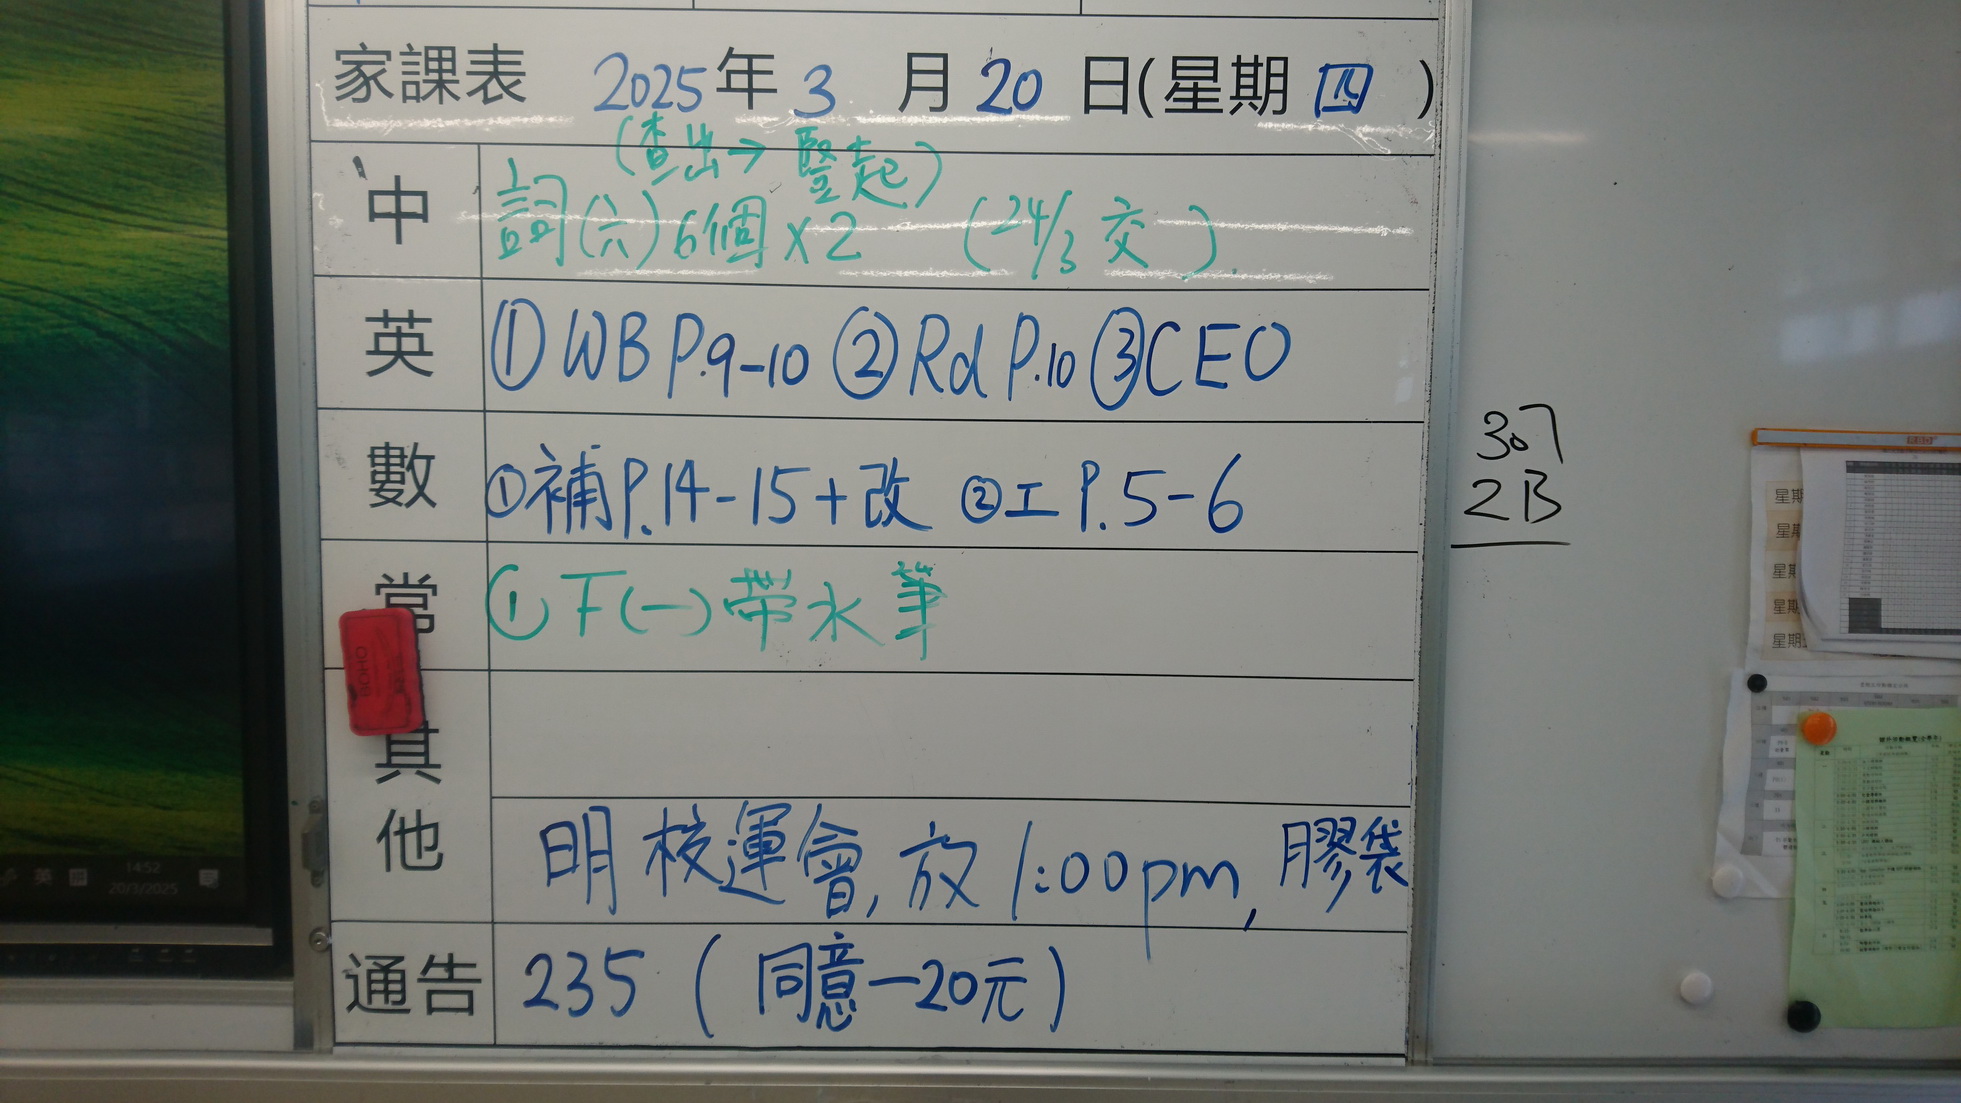 家課表 2025年 3 月 20 日(星期 四 )
中
(查出→豎起)
詞(六)6個×2 (24/3 交).
英 ①WB P.9-10 ②Rd P.10 ③CEO
數 ①補P.14-15+改 ②工 P.5-6
常 ①下(一)帶水筆
其他
明 校運會, 放 1:00pm, 膠袋
通告 235 (同意—20元)
307
2B
英
14:52
20/3/2025
星期
星期
星期
星期
星期